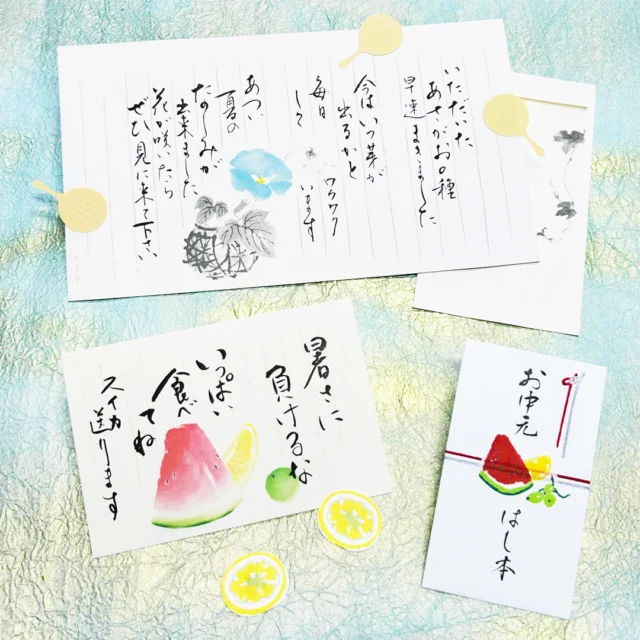 いただいた
あさがおの種
早速まきました
今はいつ芽が
出るかと
毎日
ワクワク
して
います
あつい
夏の
たのしみが
出来ました
花が咲いたら
ぜひ見に来て下さい
暑さに
負けるな
いっぱい
食べ
てね
スイカ
送ります
お中元
はし本